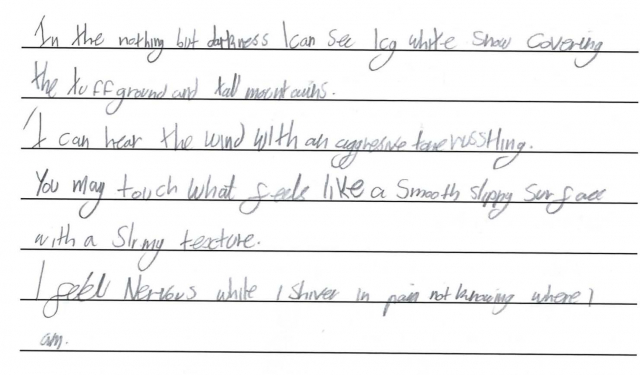 In the nothing but darkness I can see Icy white snow covering
the tuff ground and tall mountains.
I can hear the wind with an aggresive tone russtling.
You may touch what feels like a smooth slippy surface
with a slimy texture.
I feel Nervous while I shiver in pain not knowing where I
am.